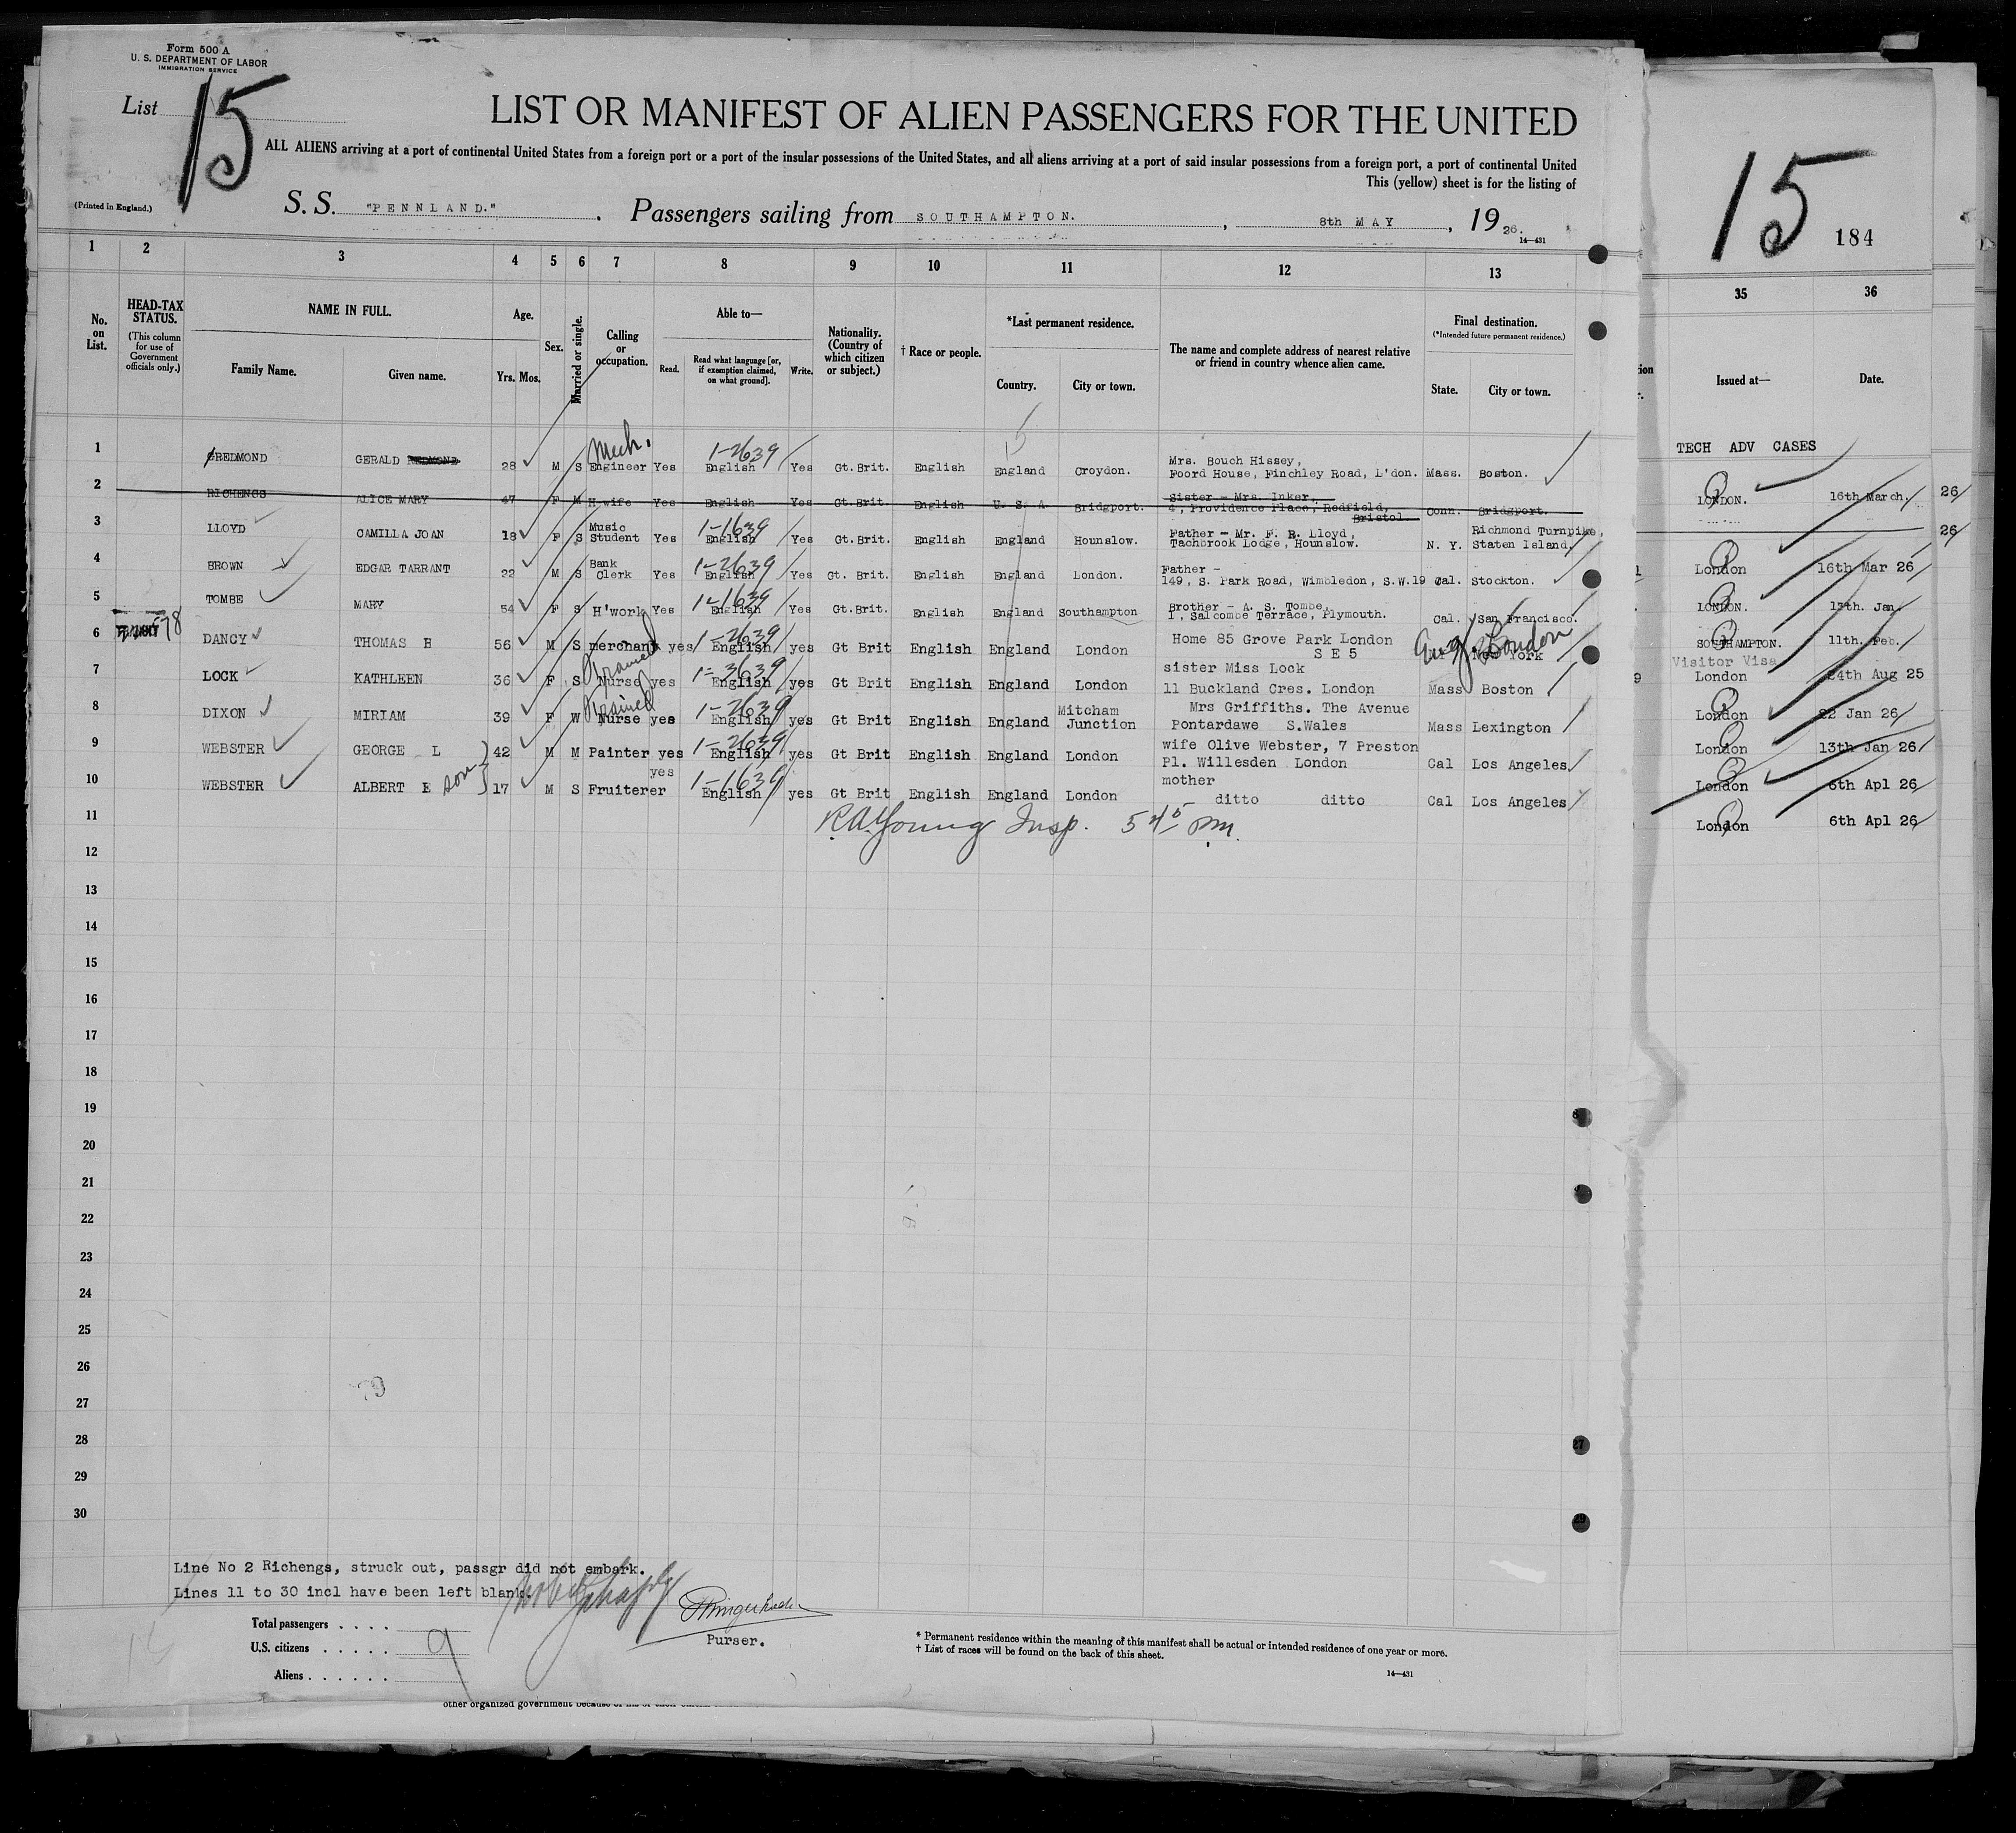 Form 500 A
U. S. DEPARTMENT OF LABOR
IMMIGRATION SERVICE
List 15
LIST OR MANIFEST OF ALIEN PASSENGERS FOR THE UNITED
ALL ALIENS arriving at a port of continental United States from a foreign port or a port of the insular possessions of the United States, and all aliens arriving at a port of said insular possessions from a foreign port, a port of continental United
This (yellow) sheet is for the listing of
(Printed in England.)
S. S. "PENNLAND." Passengers sailing from SOUTHAMPTON. , 8th MAY , 19 26.
14—431
15 184
1 2 3 4 5 6 7 8 9 10 11 12 13 35 36
No. on List.
HEAD-TAX STATUS.
(This column for use of Government officials only.)
NAME IN FULL.
Family Name. Given name.
Age.
Yrs. Mos.
Sex.
Married or single.
Calling or occupation.
Able to—
Read. Read what language [or, if exemption claimed, on what ground]. Write.
Nationality. (Country of which citizen or subject.)
† Race or people.
*Last permanent residence.
Country. City or town.
The name and complete address of nearest relative or friend in country whence alien came.
Final destination.
(*Intended future permanent residence.)
State. City or town.
Issued at— Date.
TECH ADV CASES
15
1 GREDMOND GERALD REDMOND 28 M S Mech. Engineer Yes 1-2639 English Yes Gt. Brit. English England Croydon. Mrs. Bouch Hissey, Foord House, Finchley Road, L'don. Mass. Boston.
2 RICHENGS ALICE MARY 47 F M H-wife Yes English Yes Gt.Brit. English U. S. A. Bridgport. Sister - Mrs. Inker, 4, Providence Place, Redfield, Bristol Conn. Bridgport.
3 LLOYD CAMILLA JOAN 18 F S Music Student Yes 1-1639 English Yes Gt.Brit. English England Hounslow. Father - Mr. F. R. Lloyd, Tachbrook Lodge, Hounslow. N. Y. Richmond Turnpike, Staten Island.
4 BROWN EDGAR TARRANT 22 M S Bank Clerk Yes 1-2639 English Yes Gt. Brit. English England London. Father - 149, S. Park Road, Wimbledon, S.W.19 Cal. Stockton.
5 TOMBE MARY 54 F S H'work Yes 1-1639 English Yes Gt.Brit. English England Southampton Brother - A. S. Tombe, 1, Salcombe Terrace, Plymouth. Cal. San Francisco.
6 DANCY THOMAS H 56 M S merchant yes 1-2639 English yes Gt Brit English England London Home 85 Grove Park London S E 5 New York Eng. London
7 LOCK KATHLEEN 36 F S Trained Nurse yes 1-3639 English yes Gt Brit English England London sister Miss Lock 11 Buckland Cres. London Mass Boston
8 DIXON MIRIAM 39 F W Trained Nurse yes 1-2639 English yes Gt Brit English England Mitcham Junction Mrs Griffiths. The Avenue Pontardawe S.Wales Mass Lexington
9 WEBSTER GEORGE L 42 M M Painter yes 1-2639 English yes Gt Brit English England London wife Olive Webster, 7 Preston Pl. Willesden London Cal Los Angeles
10 WEBSTER ALBERT E son 17 M S Fruiterer yes 1-1639 English yes Gt Brit English England London mother ditto ditto Cal Los Angeles
LONDON. 16th March, 26
26
London 16th Mar 26
LONDON. 15th. Jan,
SOUTHAMPTON. 11th. Feb.
Visitor Visa
London 24th Aug 25
London 22 Jan 26
London 13th Jan 26
London 6th Apl 26
London 6th Apl 26
11 R.A. Young Insp. 5 45 pm.
12
13
14
15
16
17
18
19
20
21
22
23
24
25
26
27
28
29
30
Line No 2 Richengs, struck out, passgr did not embark.
Lines 11 to 30 incl have been left blank.
Purser.
Total passengers . . . .
U.S. citizens . . . . . 9
Aliens . . . . . .
* Permanent residence within the meaning of this manifest shall be actual or intended residence of one year or more.
† List of races will be found on the back of this sheet.
14—431